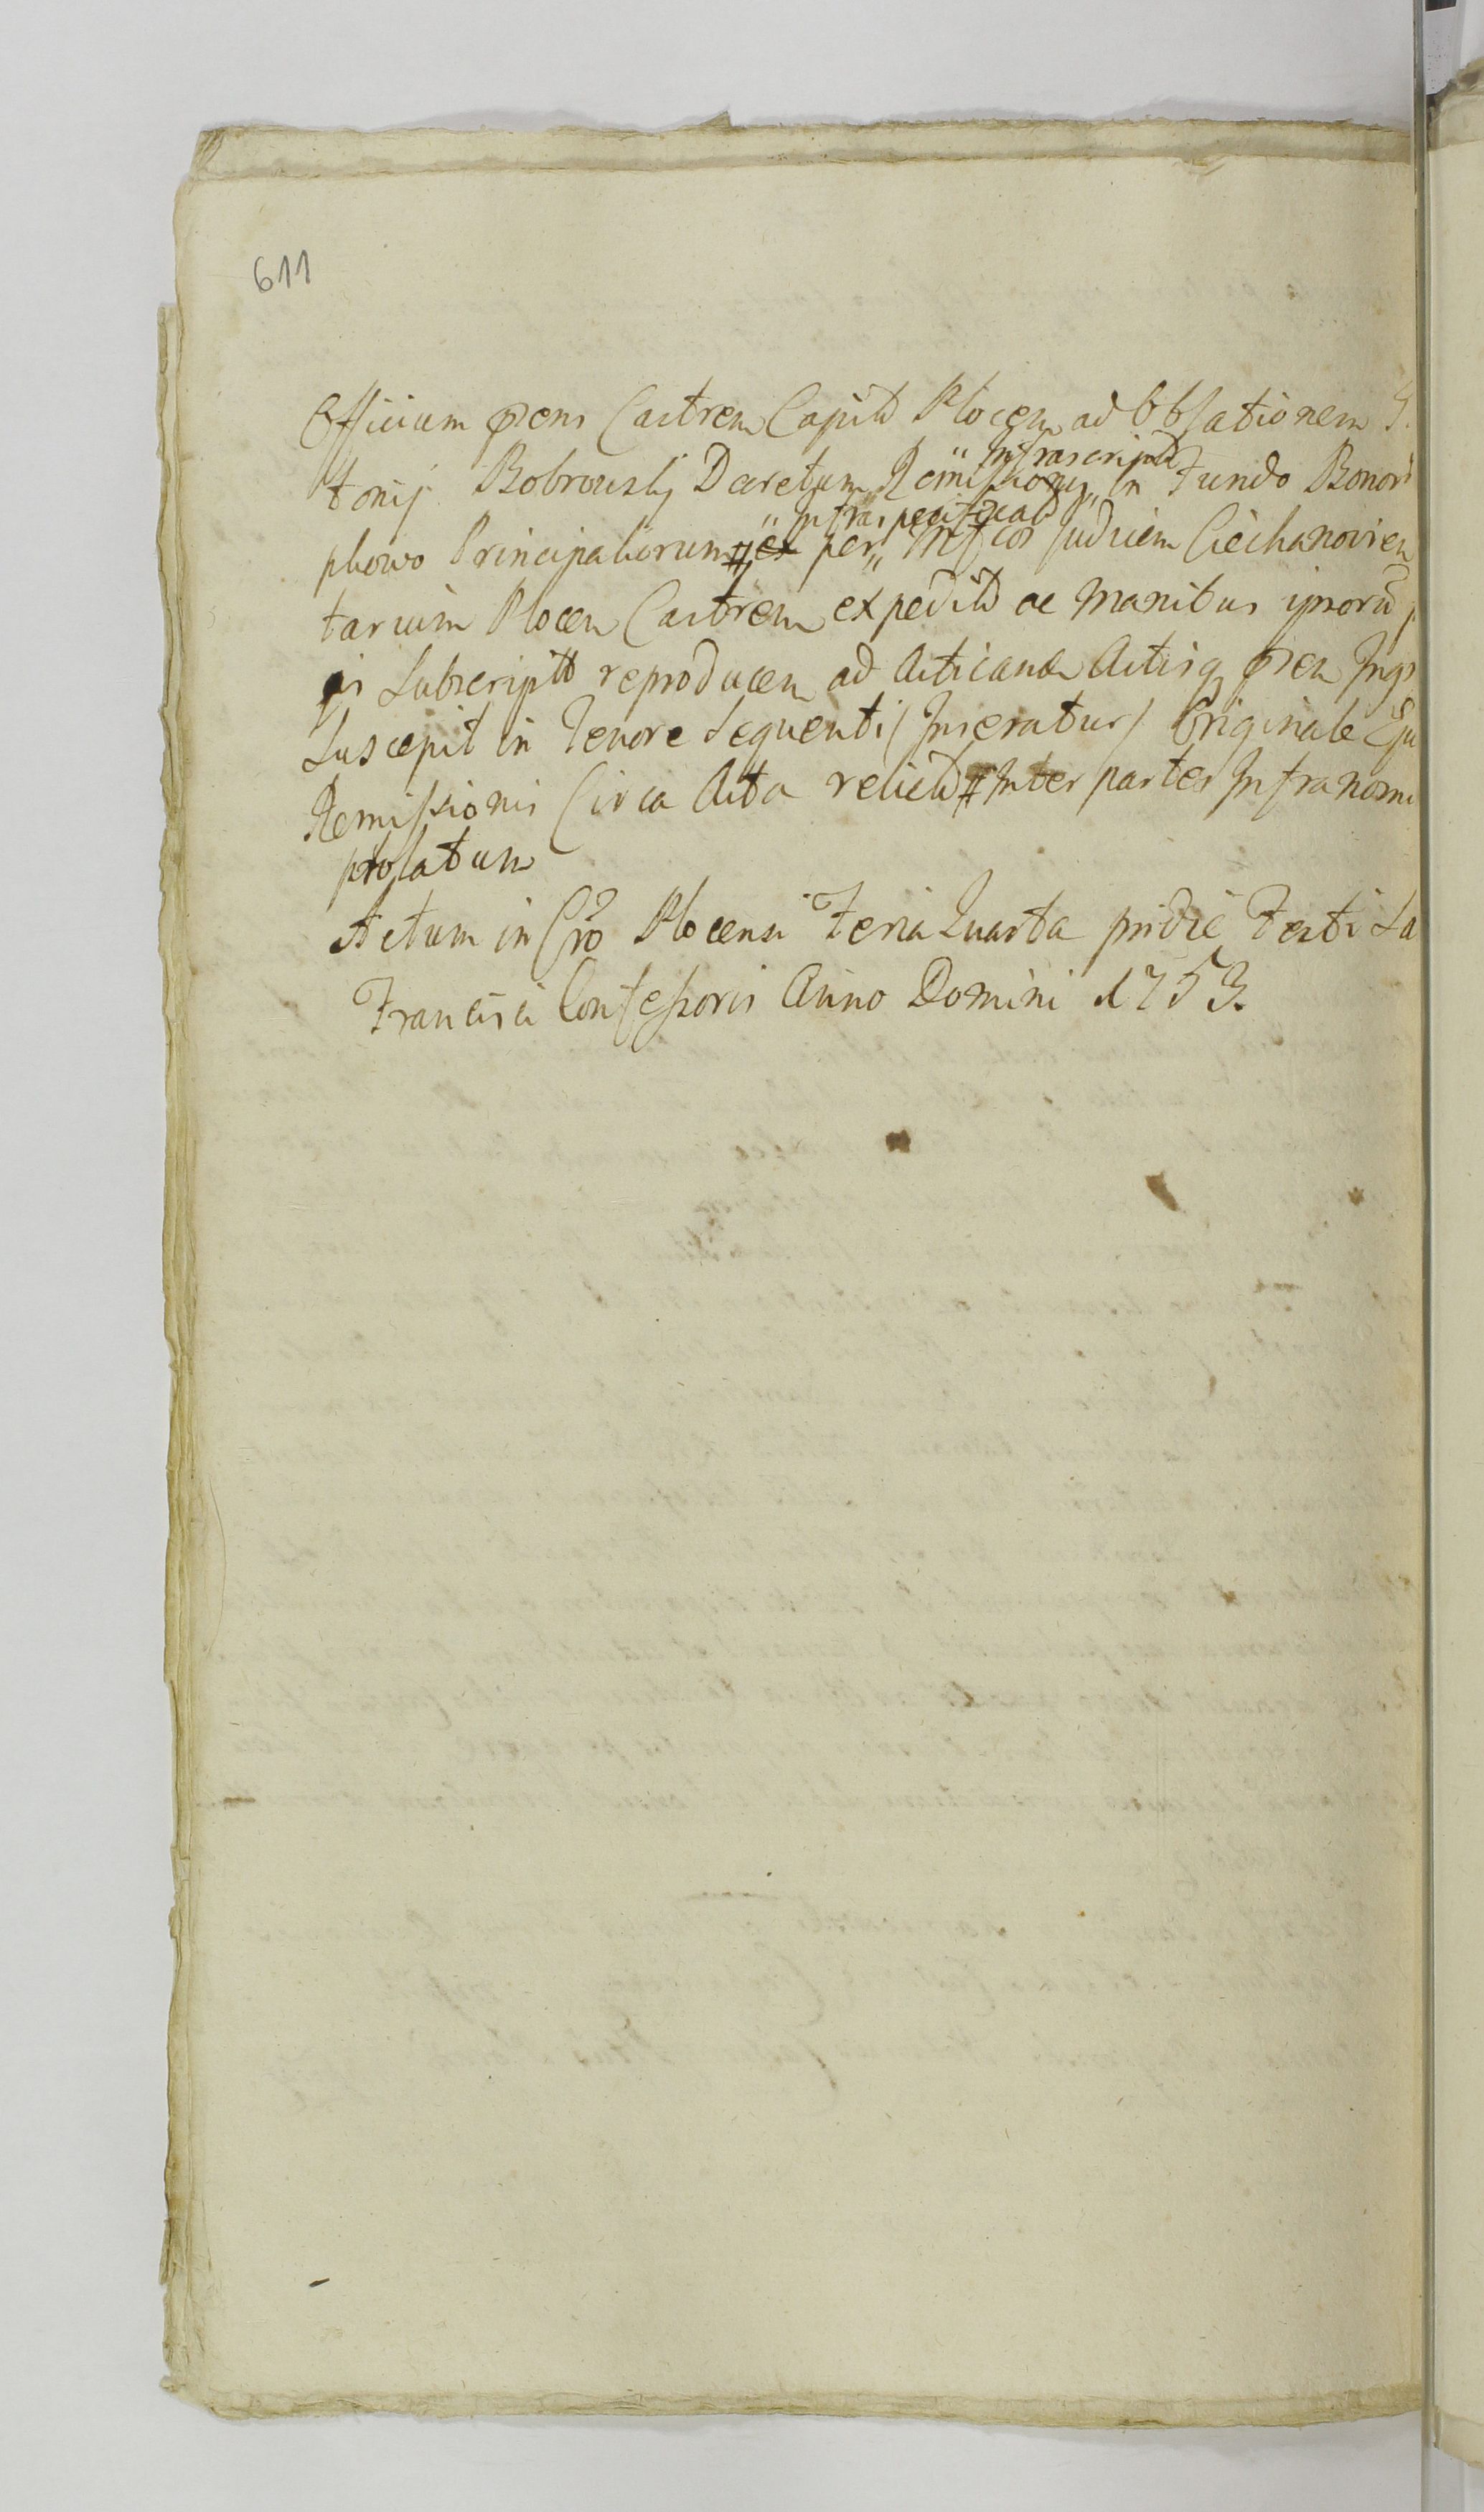 611
Officium præns Castren Capitl Plocen ad Oblationem G.
tonij Bobrowskj Decretum Remissionis " Infrascripti " In Fundo Bonor
phowo Principaliorum # ex per " Infraspecificatl " Mfcos Judicem Ciechanovien
tarium Plocen Castren expeditl ac Manibus ipsorū p
is Subscriptl reproducen ad Acticand Actisq præn Ingr
Suscepit in Tenore Sequenti (Inseratur) Originale Eju
Remissionis Circa Acta relictl # Inter partes Infranomi
prolatum
Actum in Cro Plocensi Feria Quarta pridie Festi Sa
Francisci Confessoris Anno Domini 1753.